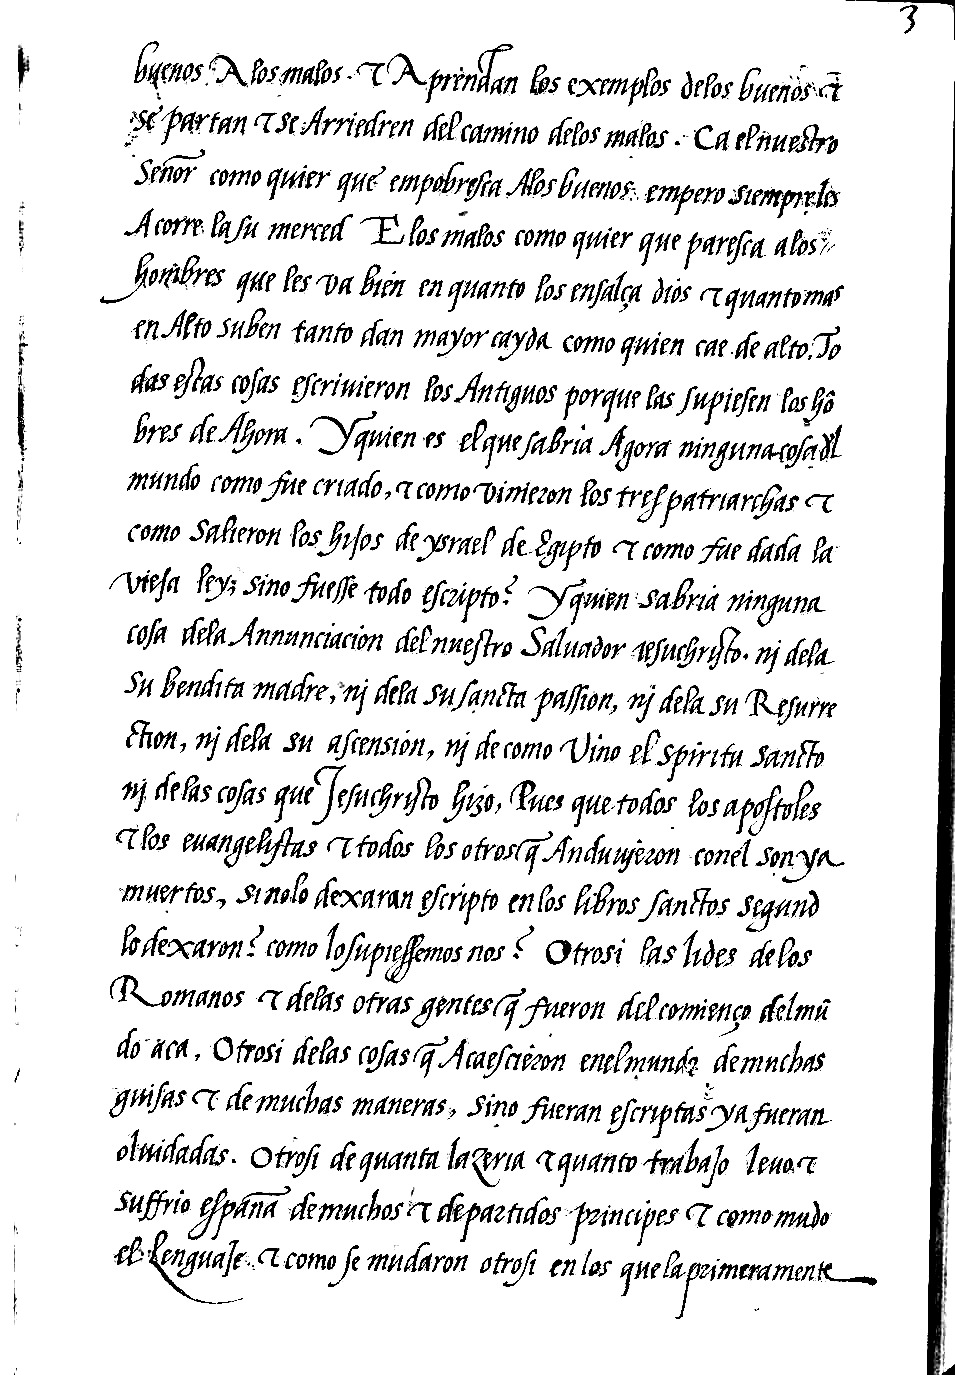 3
buenos A los malos. τ Aprendan los exemplos delos buenos τ
se partan τ se Arriedren del camino delos malos. Ca el nuestro
Señor como quier que empobresca Alos buenos empero siempre les
Acorre la su merced E los malos como quier que paresca a los
hombres que les va bien en quanto los ensalça dios τ quanto mas
en Alto suben tanto dan mayor cayda como quien cae de alto. To
das estas cosas escrivieron los Antiguos porque las supiesen los hõ
bres de Ahora. Y quien es el que sabria Agora ninguna cosa dl
mundo como fue criado, τ como vinieron los tres patriarchas τ
como salieron los hijos de ysrael de Egipto τ como fue dada la
vieja ley; sino fuesse todo escripto? Y quien sabria ninguna
cosa dela Annunciacion del nuestro Salvador iesuchristo. nj dela
su bendita madre, nj dela su sancta passion, nj dela su Resurre
ction, nj dela su ascension, nj de como vino el spiritu sancto
nj de las cosas que Jesuchristo hizo, Pues que todos los apostoles
τ los evangelistas τ todos los otros q̃ Anduvjeron conel son ya
muertos, si nolo dexaran escripto en los libros sanctos segund
lo dexaron? como lo supiessemos nos? Otrosi las lides de los
Romanos τ delas otras gentes q̃ fueron del comienço del mũ
do aca. Otrosi delas cosas q̃ Acaescieron enel mundo de muchas
guisas τ de muchas maneras, sino fueran escriptas ya fueran
olvidadas. Otrosi de quanta lazeria τ quanto trabajo levo τ
suffrio españa de muchos τ departidos principes τ como mudo
el Lenguaje τ como se mudaron otrosi en los que la primeramente